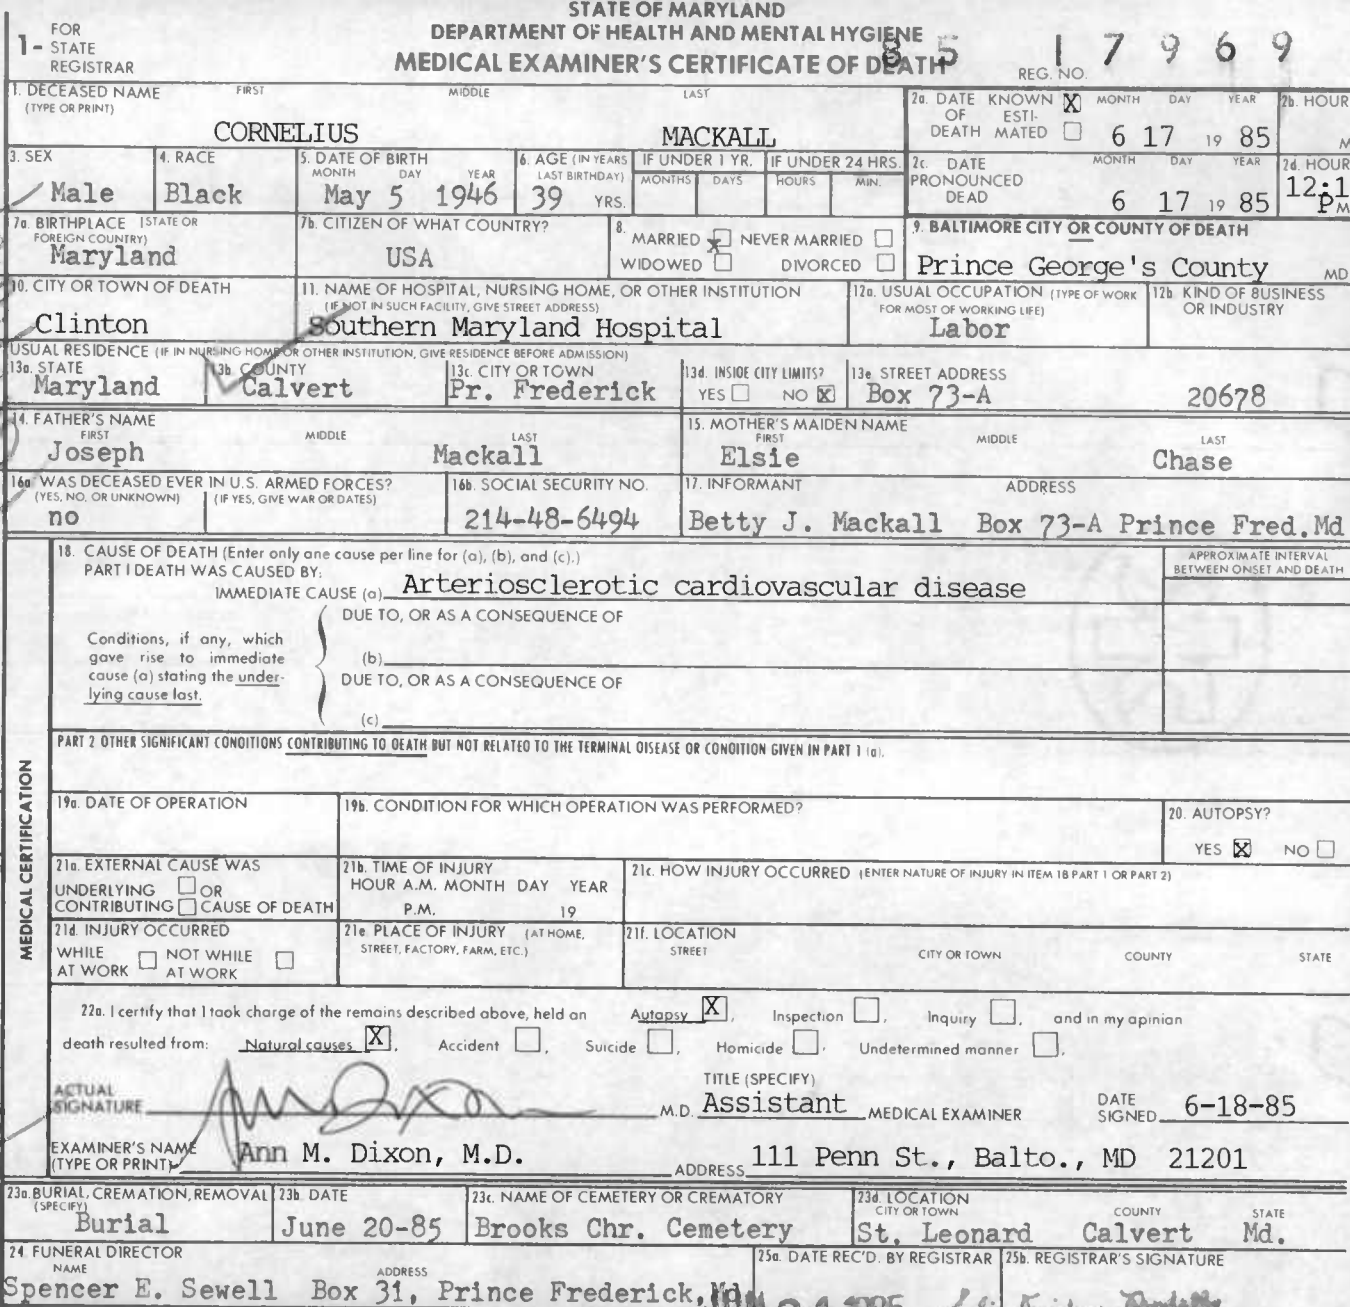 STATE OF MARYLAND
DEPARTMENT OF HEALTH AND MENTAL HYGIENE
MEDICAL EXAMINER'S CERTIFICATE OF DEATH
1- FOR STATE REGISTRAR
REG. NO. 85 17969
1. DECEASED NAME (TYPE OR PRINT) FIRST MIDDLE LAST
CORNELIUS MACKALL
2a. DATE OF DEATH KNOWN X ESTIMATED MONTH DAY YEAR
6 17 19 85
2b. HOUR
M
3. SEX
Male
4. RACE
Black
5. DATE OF BIRTH MONTH DAY YEAR
May 5 1946
6. AGE (IN YEARS LAST BIRTHDAY)
39 YRS.
IF UNDER 1 YR. MONTHS DAYS
IF UNDER 24 HRS. HOURS MIN.
2c. DATE PRONOUNCED DEAD MONTH DAY YEAR
6 17 19 85
2d. HOUR
12:1
PM
7a. BIRTHPLACE (STATE OR FOREIGN COUNTRY)
Maryland
7b. CITIZEN OF WHAT COUNTRY?
USA
8. MARRIED x NEVER MARRIED
WIDOWED DIVORCED
9. BALTIMORE CITY OR COUNTY OF DEATH
Prince George's County MD
10. CITY OR TOWN OF DEATH
Clinton
11. NAME OF HOSPITAL, NURSING HOME, OR OTHER INSTITUTION
(IF NOT IN SUCH FACILITY, GIVE STREET ADDRESS)
Southern Maryland Hospital
12a. USUAL OCCUPATION (TYPE OF WORK FOR MOST OF WORKING LIFE)
Labor
12b. KIND OF BUSINESS OR INDUSTRY
USUAL RESIDENCE (IF IN NURSING HOME OR OTHER INSTITUTION, GIVE RESIDENCE BEFORE ADMISSION)
13a. STATE
Maryland
13b. COUNTY
Calvert
13c. CITY OR TOWN
Pr. Frederick
13d. INSIDE CITY LIMITS?
YES NO X
13e STREET ADDRESS
Box 73-A 20678
14. FATHER'S NAME FIRST MIDDLE LAST
Joseph Mackall
15. MOTHER'S MAIDEN NAME FIRST MIDDLE LAST
Elsie Chase
16a WAS DECEASED EVER IN U.S. ARMED FORCES?
(YES, NO, OR UNKNOWN) (IF YES, GIVE WAR OR DATES)
no
16b. SOCIAL SECURITY NO.
214-48-6494
17. INFORMANT ADDRESS
Betty J. Mackall Box 73-A Prince Fred.Md
MEDICAL CERTIFICATION
18. CAUSE OF DEATH (Enter only one cause per line for (a), (b), and (c).)
PART I DEATH WAS CAUSED BY:
IMMEDIATE CAUSE (a) Arteriosclerotic cardiovascular disease
APPROXIMATE INTERVAL
BETWEEN ONSET AND DEATH
DUE TO, OR AS A CONSEQUENCE OF
Conditions, if any, which
gave rise to immediate
cause (a) stating the under-
lying cause last.
(b)
DUE TO, OR AS A CONSEQUENCE OF
(c)
PART 2 OTHER SIGNIFICANT CONDITIONS CONTRIBUTING TO DEATH BUT NOT RELATED TO THE TERMINAL DISEASE OR CONDITION GIVEN IN PART 1 (a).
19a. DATE OF OPERATION
19b. CONDITION FOR WHICH OPERATION WAS PERFORMED?
20. AUTOPSY?
YES X NO
21a. EXTERNAL CAUSE WAS
UNDERLYING OR
CONTRIBUTING CAUSE OF DEATH
21b. TIME OF INJURY
HOUR A.M. MONTH DAY YEAR
P.M. 19
21c. HOW INJURY OCCURRED (ENTER NATURE OF INJURY IN ITEM 18 PART 1 OR PART 2)
21d. INJURY OCCURRED
WHILE AT WORK NOT WHILE AT WORK
21e. PLACE OF INJURY (AT HOME, STREET, FACTORY, FARM, ETC.)
21f. LOCATION
STREET CITY OR TOWN COUNTY STATE
22a. I certify that I took charge of the remains described above, held an Autopsy X, Inspection , Inquiry , and in my opinion
death resulted from: Natural causes X, Accident , Suicide , Homicide , Undetermined manner .
ACTUAL SIGNATURE M.D.
TITLE (SPECIFY)
Assistant MEDICAL EXAMINER
DATE SIGNED 6-18-85
EXAMINER'S NAME (TYPE OR PRINT) Ann M. Dixon, M.D.
ADDRESS 111 Penn St., Balto., MD 21201
23a. BURIAL, CREMATION, REMOVAL (SPECIFY)
Burial
23b. DATE
June 20-85
23c. NAME OF CEMETERY OR CREMATORY
Brooks Chr. Cemetery
23d. LOCATION CITY OR TOWN COUNTY STATE
St. Leonard Calvert Md.
24. FUNERAL DIRECTOR NAME ADDRESS
Spencer E. Sewell Box 31, Prince Frederick, Md
25a. DATE REC'D. BY REGISTRAR
25b. REGISTRAR'S SIGNATURE